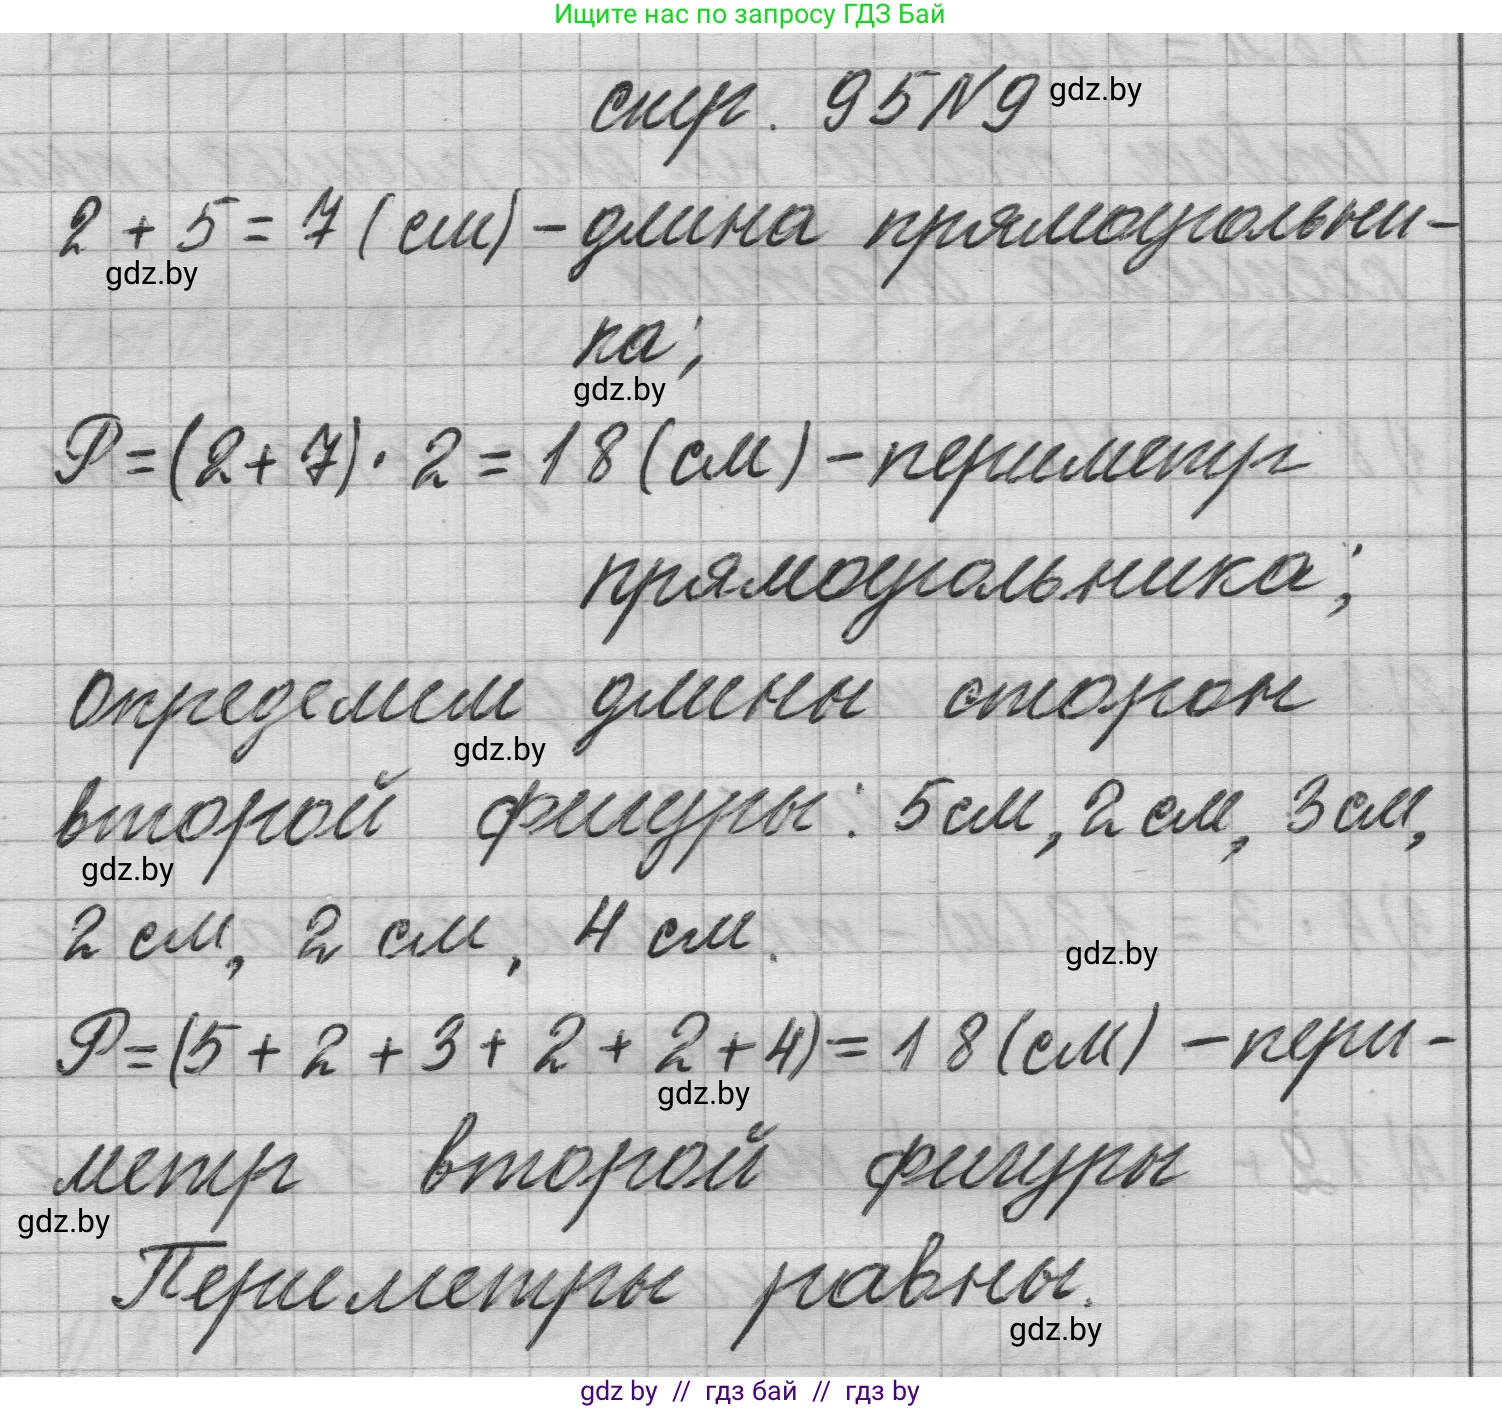 Ищите нас по запросу ГДЗ Бай
стр. 95 №9 gdz.by
2 + 5 = 7 (см) – длина прямоугольни-
gdz.by
ка;
gdz.by
P = (2 + 7) · 2 = 18 (см) – периметр
прямоугольника;
определим длины сторон
gdz.by
второй фигуры: 5 см, 2 см, 3 см,
gdz.by
2 см, 2 см, 4 см.
gdz.by
P = (5 + 2 + 3 + 2 + 2 + 4) = 18 (см) – пери-
gdz.by
метр второй фигуры
gdz.by
Периметры равны.
gdz.by
gdz by // гдз бай // гдз by